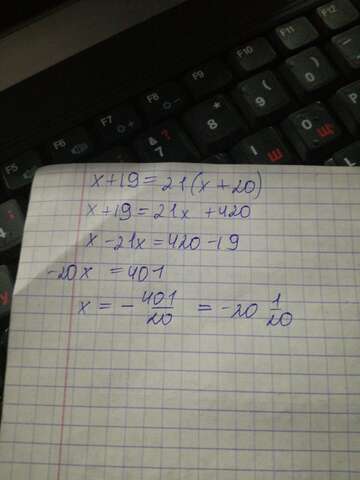 F12
F11
F10
F9
F8
F7
F6
F5
x+19=21(x+20)
x+19=21x +420
x-21x=420-19
-20x =401
x = -401/20 = -20 1/20